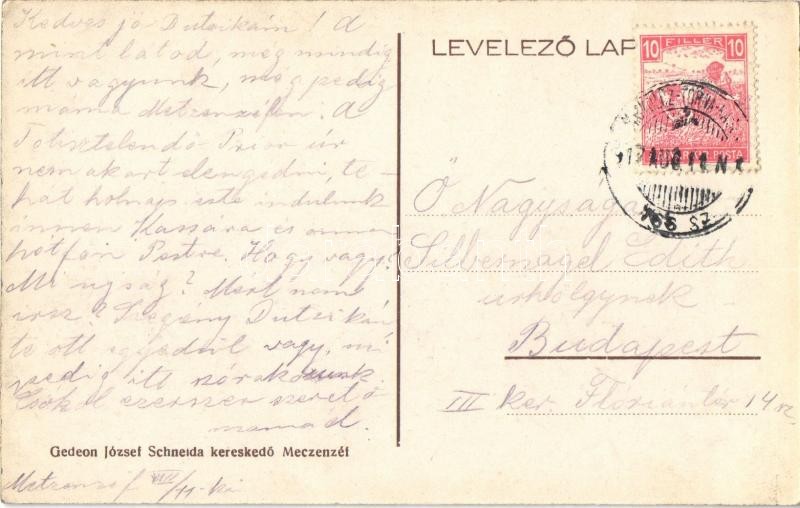 Kedves jó Duteikám! A
mint látod, még mindig
itt vagyunk, még pedig
máma Metzenzéfen. A
Főtisztelendő Prior úr
nem akart elengedni, te-
hát holnap este indulunk
innen Kassára és onnan
hétfőn Pestre. Hogy vagy?
Mi ujság? Mért nem
írsz? Szegény Duteikám
te ott egyedül vagy, mi
pedig itt szórakozunk.
Csókol ezerszer szerető
mamád.
Gedeon József Schneida kereskedő Meczenzéf
Metzenzéf VIII/11-kén
LEVELEZŐ LAP
10 FILLER 10
Ő Nagysága
Silbernagel Edith
úrhölgynek
Budapest
III ker. Flóriántér 14 sz.